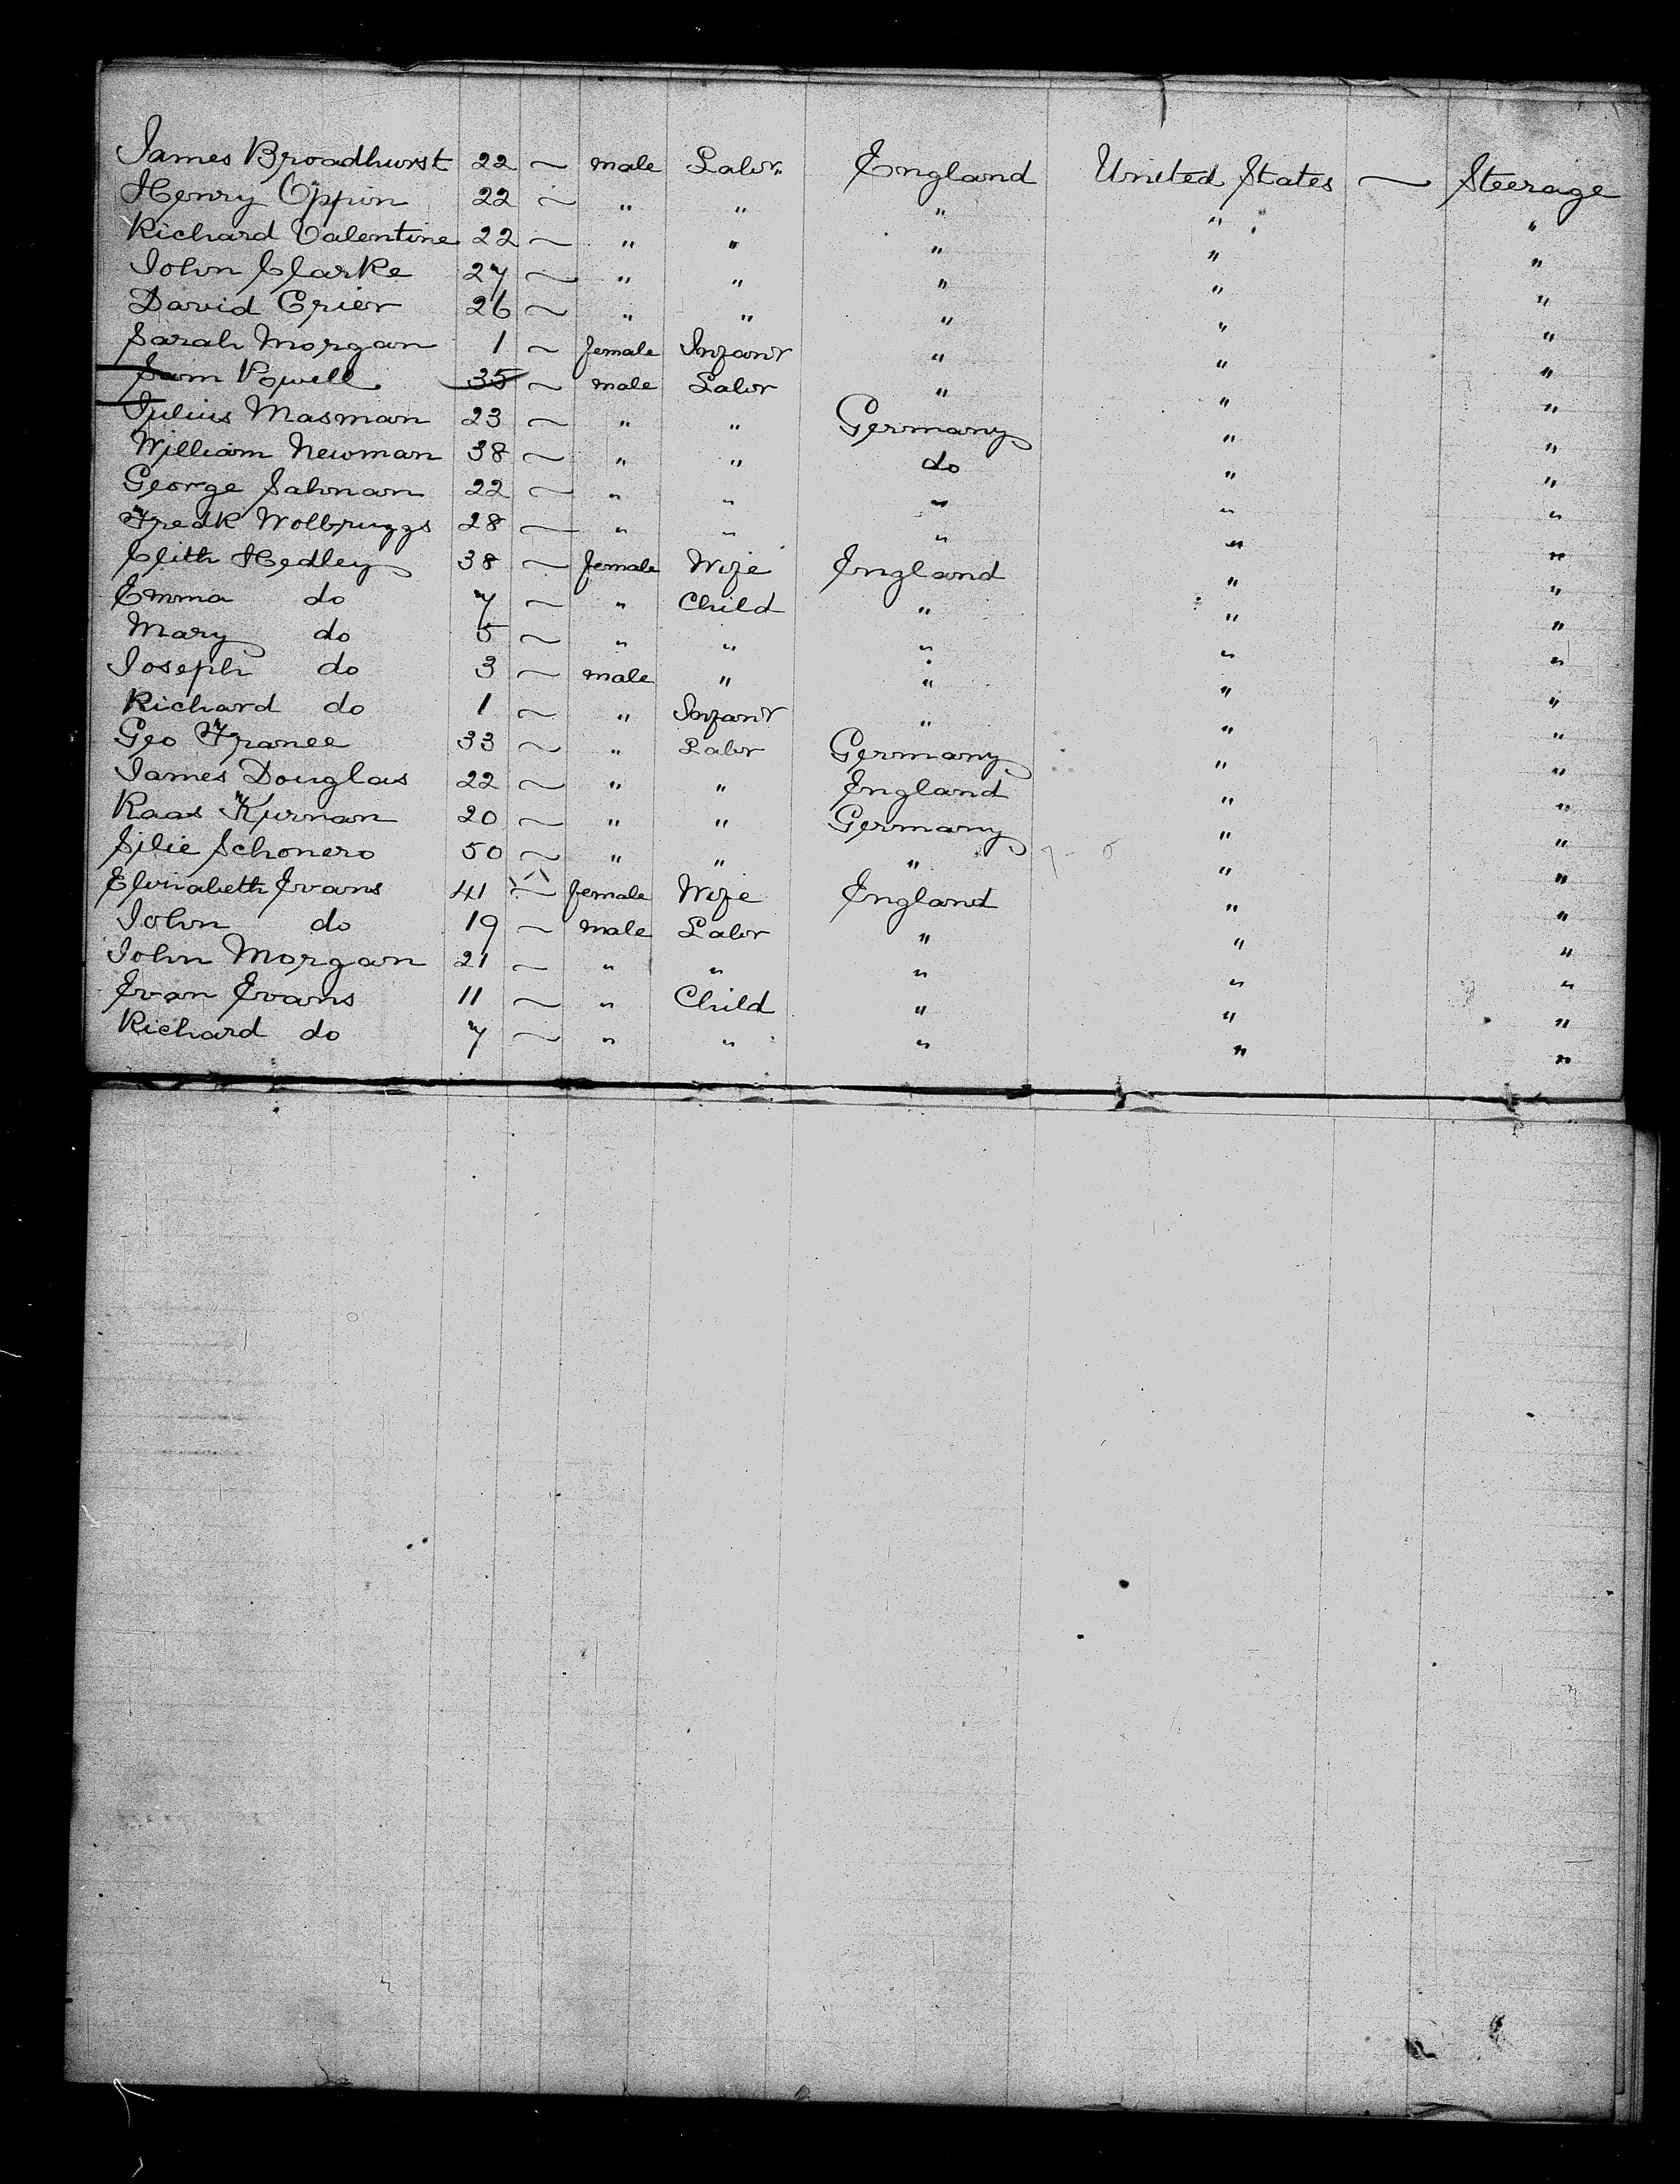 James Broadhurst 22 ~ male Labor England United States ~ Steerage
Henry Oppin 22 ~ " " " " "
Richard Valentine 22 ~ " " " " "
John Clarke 27 ~ " " " " "
David Grier 26 ~ " " " " "
Sarah Morgan 1 ~ female Infant " " "
Sam Powell 35 ~ male Labor " " "
Julius Masman 23 ~ " " Germany " "
William Newman 38 ~ " " do " "
George Salman 22 ~ " " " " "
Fredk Wolbruggs 28 ~ " " " " "
Clith Hedley 38 ~ female Wife England " "
Emma do 7 ~ " Child " " "
Mary do 5 ~ " " " " "
Joseph do 3 ~ male " " " "
Richard do 1 ~ " Infant " " "
Geo Franee 33 ~ " Labor Germany " "
James Douglas 22 ~ " " England " "
Kaas Kurnan 20 ~ " " Germany " "
Silie Schonero 50 ~ " " " " "
Elizabeth Evans 41 ~ female Wife England " "
John do 19 ~ male Labor " " "
John Morgan 21 ~ " " " " "
Evan Evans 11 ~ " Child " " "
Richard do 7 ~ " " " " "